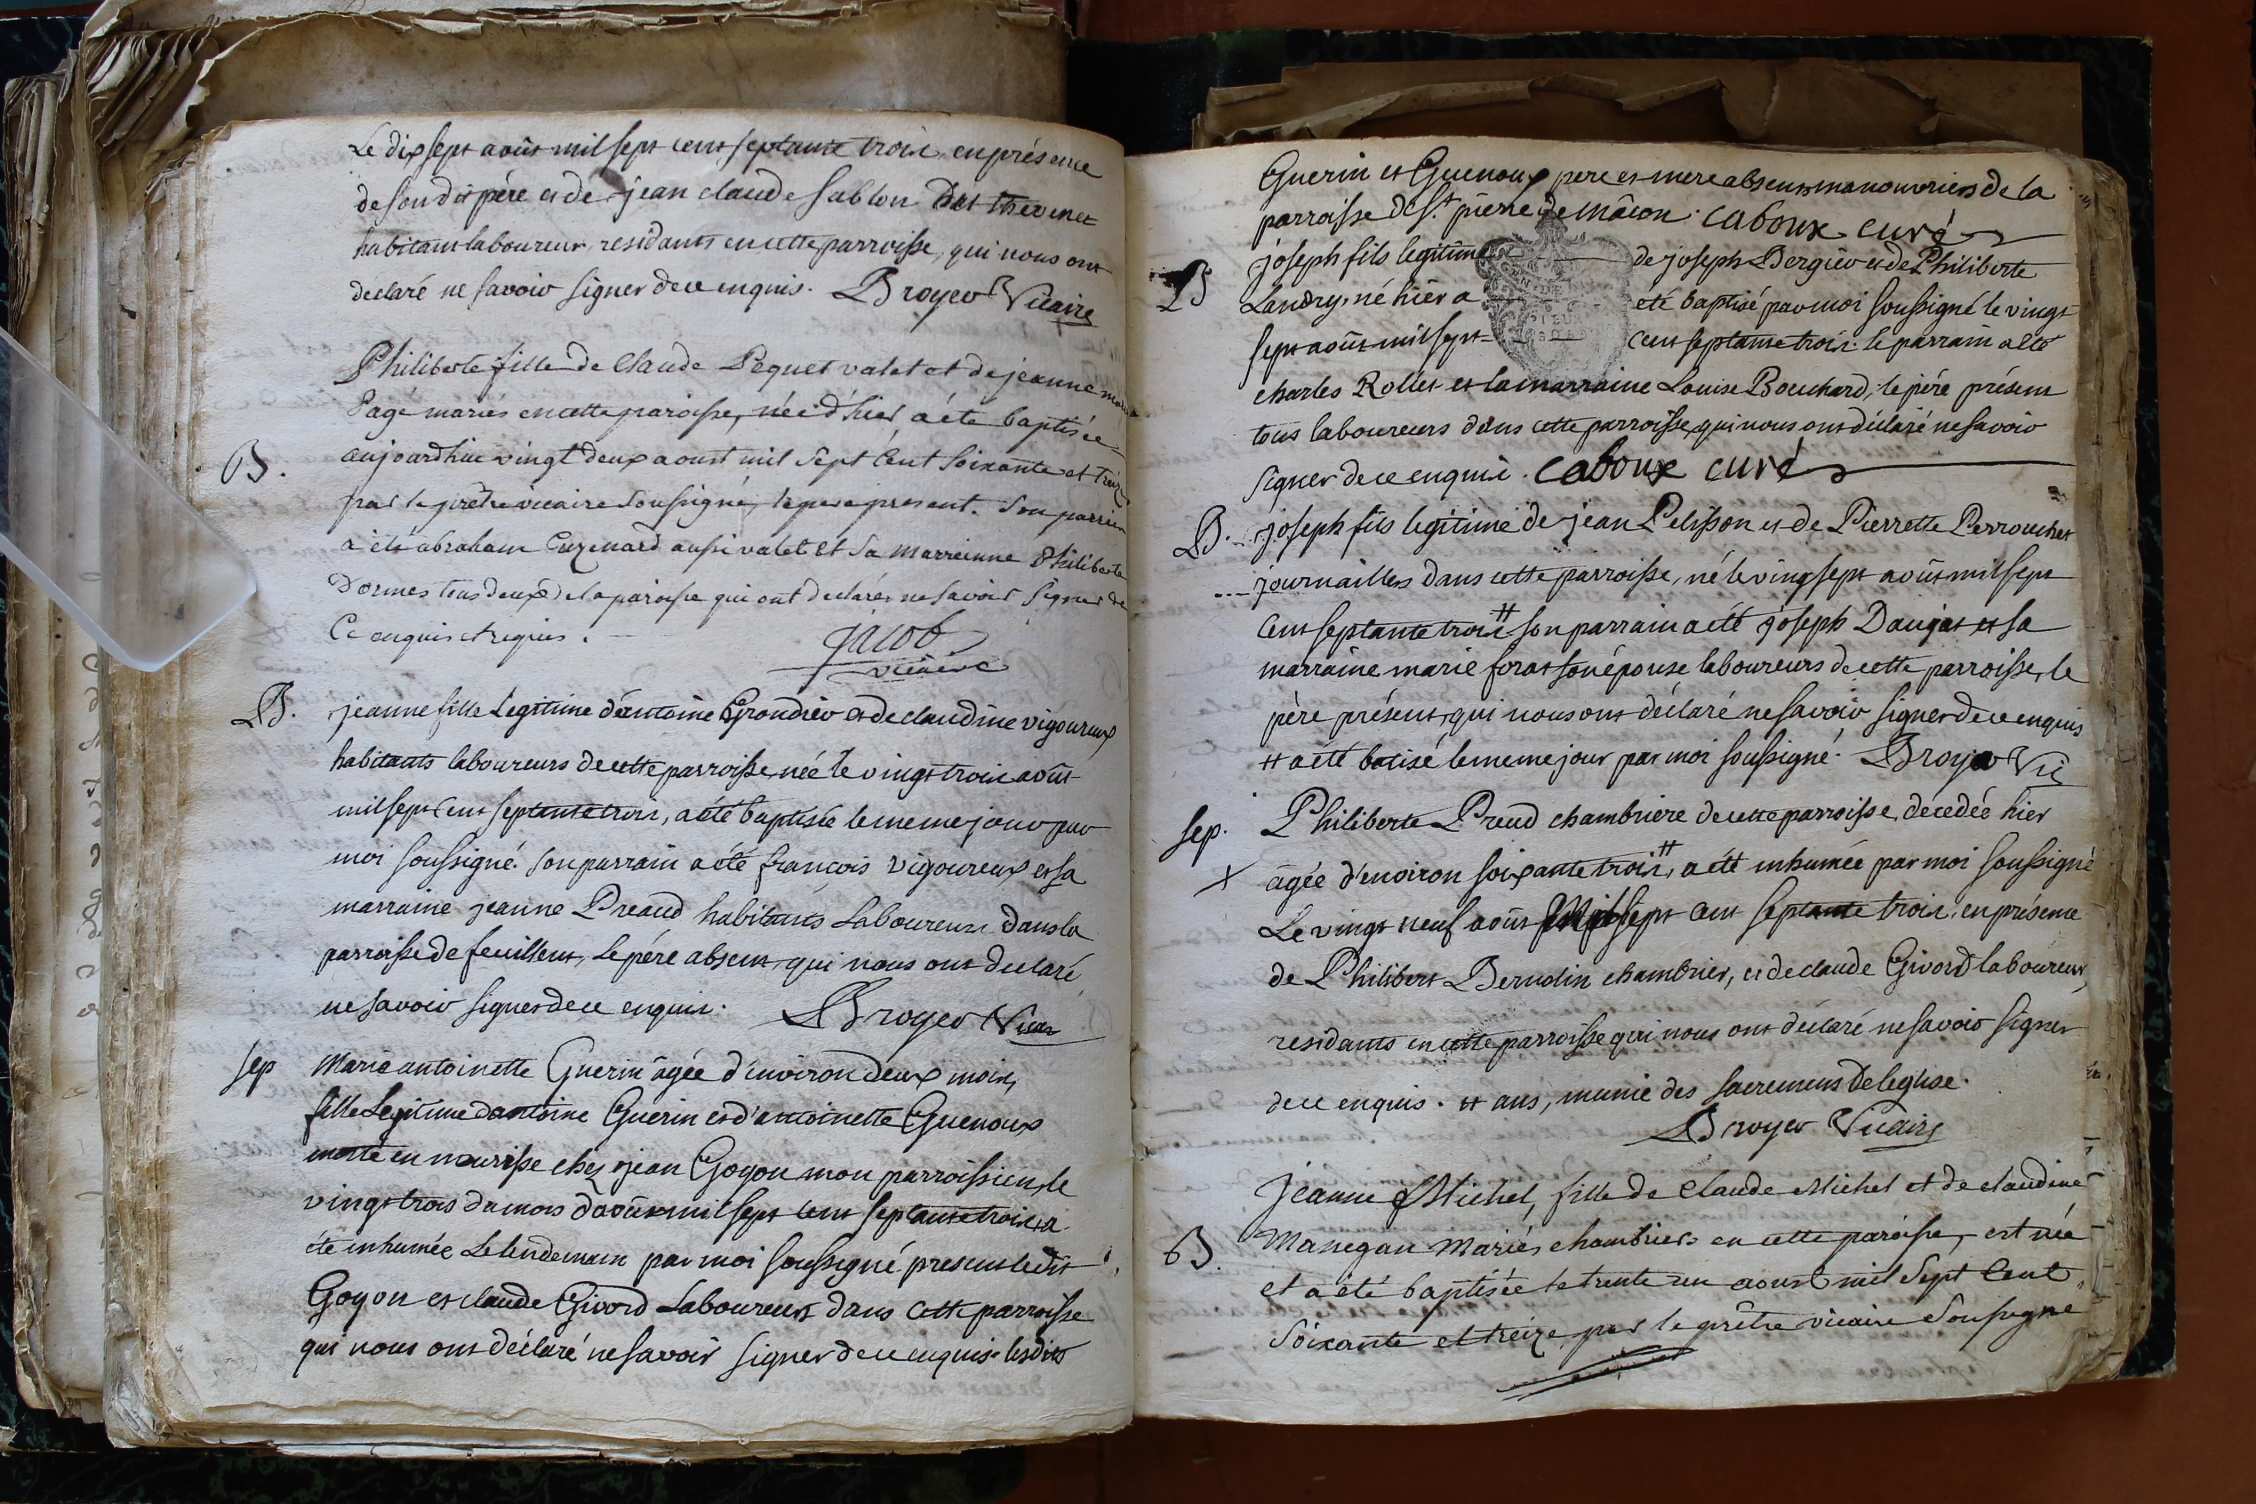 Le dix sept août mil sept cent septante trois, en présence
de son dit père et de jean claude Sablon dit thevenet
habitant laboureur, residants en cette parroisse, qui nous ont
declaré ne savoir signer de ce enquis. Broyer Vicaire
Philiberte fille de Claude Pequet valet et de jeanne marie
Pagé mariés en cette paroisse, née d'hier, a été baptisée
B. aujourdhui vingt deux aoust mil sept Cent Soixante et treize
par le prêtre vicaire Soussigné, le pere present. Son parrien
a été abraham Cuzenard aussi valet et Sa marreinne Philiberte
Dormes tous deux de la paroisse qui ont declarés ne savoir Signer de
Ce enquis et requis.
jacob
vicaire
B. jeanne fille Legitime d'antoine Grondier et de claudine vigoureux
habitants laboureurs de cette parroisse née le vingt trois août
mil sept cent septante trois, a été baptisée le meme jour par
moi soussigné. son parrain a été francois vigoureux et sa
marraine jeanne Preaud habitants Laboureurs dans la
parroisse de feuillens, le père absent, qui nous ont declaré
ne savoir signer de ce enquis. Broyer Vicar
sep Marie antoinette Guerin âgée d'environ deux mois,
fille Legitime dantoine Guerin et d'antoinette Guenoux
morte en nourisse chez jean Goyon mon parroissien, le
vingt trois du mois d'août mil sept cent septante trois, a
été inhumée Le lendemain par moi soussigné present le dit
Goyon et claude Givord Laboureurs dans cette parroisse
qui nous ont déclaré ne savoir signer de ce enquis. lesdits
Guerin et Guenoux pere et mere absents manouvriers de la
parroisse de St. pierre de Mâcon. Caboux curé
B joseph fils legitime de joseph Bergier et de Philiberte
Landry, né hier a été baptisé par moi soussigné le vingt
sept août mil sept cent septante trois. le parrain a été
charles Rollet et la marraine Louise Bouchard, le père présent
tous laboureurs dans cette parroisse, qui nous ont déclaré ne savoir
signer de ce enquis. Caboux curé
B. joseph fils legitime de jean Pelisson et de Pierrette Perrouchet
journailles dans cette parroisse, né le vingt sept août mil sept
cent septante trois ++ son parrain a été joseph Daujat et sa
marraine marie forat son épouse laboureurs de cette parroisse, le
père présent, qui nous ont déclaré ne savoir signer de ce enquis
++ a été batisé le meme jour par moi soussigné. Broyer Vic
sep. Philiberte Preud chambriere de cette parroisse, decedée hier
x âgée d'environ soixante trois ++, a été inhumée par moi soussigné
Le vingt neuf août Mil sept cent septante trois, en présence
de Philibert Berudin chambrier, et de claude Givord laboureur,
residants en cette parroisse qui nous ont déclaré ne savoir signer
de ce enquis. ++ ans, munie des sacremens de leglise.
Broyer Vicaire
Jeanne Michel, fille de Claude Michel et de claudine
B. Manegan Mariés chambriers en cette paroisse, est née
et a été baptisée le trente un aoust mil Sept Cent
Soixante et treize, par le prêtre vicaire Soussigné